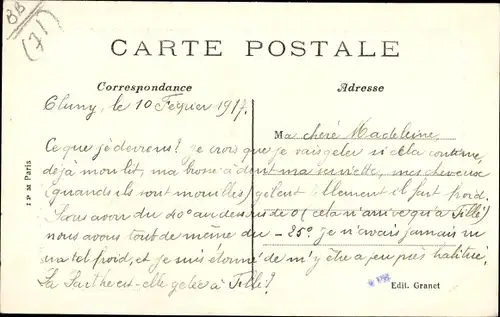 BB
(71)
CARTE POSTALE
Correspondance
Adresse
Cluny, le 10 Février 1917.
Ma chère Madeleine,
Ce que je deviens? Je crois que je vais geler si cela continue,
déjà mon lit, ma brosse à dent ma serviette, mes cheveux
(quands ils sont mouillés) gèlent tellement il fait froid.
Sans avoir du 40° au dessus de 0 (cela n'arrive qu'à Tillé)
nous avons tout de même du -25°. Je n'avais jamais vu
un tel froid, et je suis étonné de m'y être à peu près habitué.
La Sarthe est-elle gelée à Tillé?
Paris
Edit. Granet